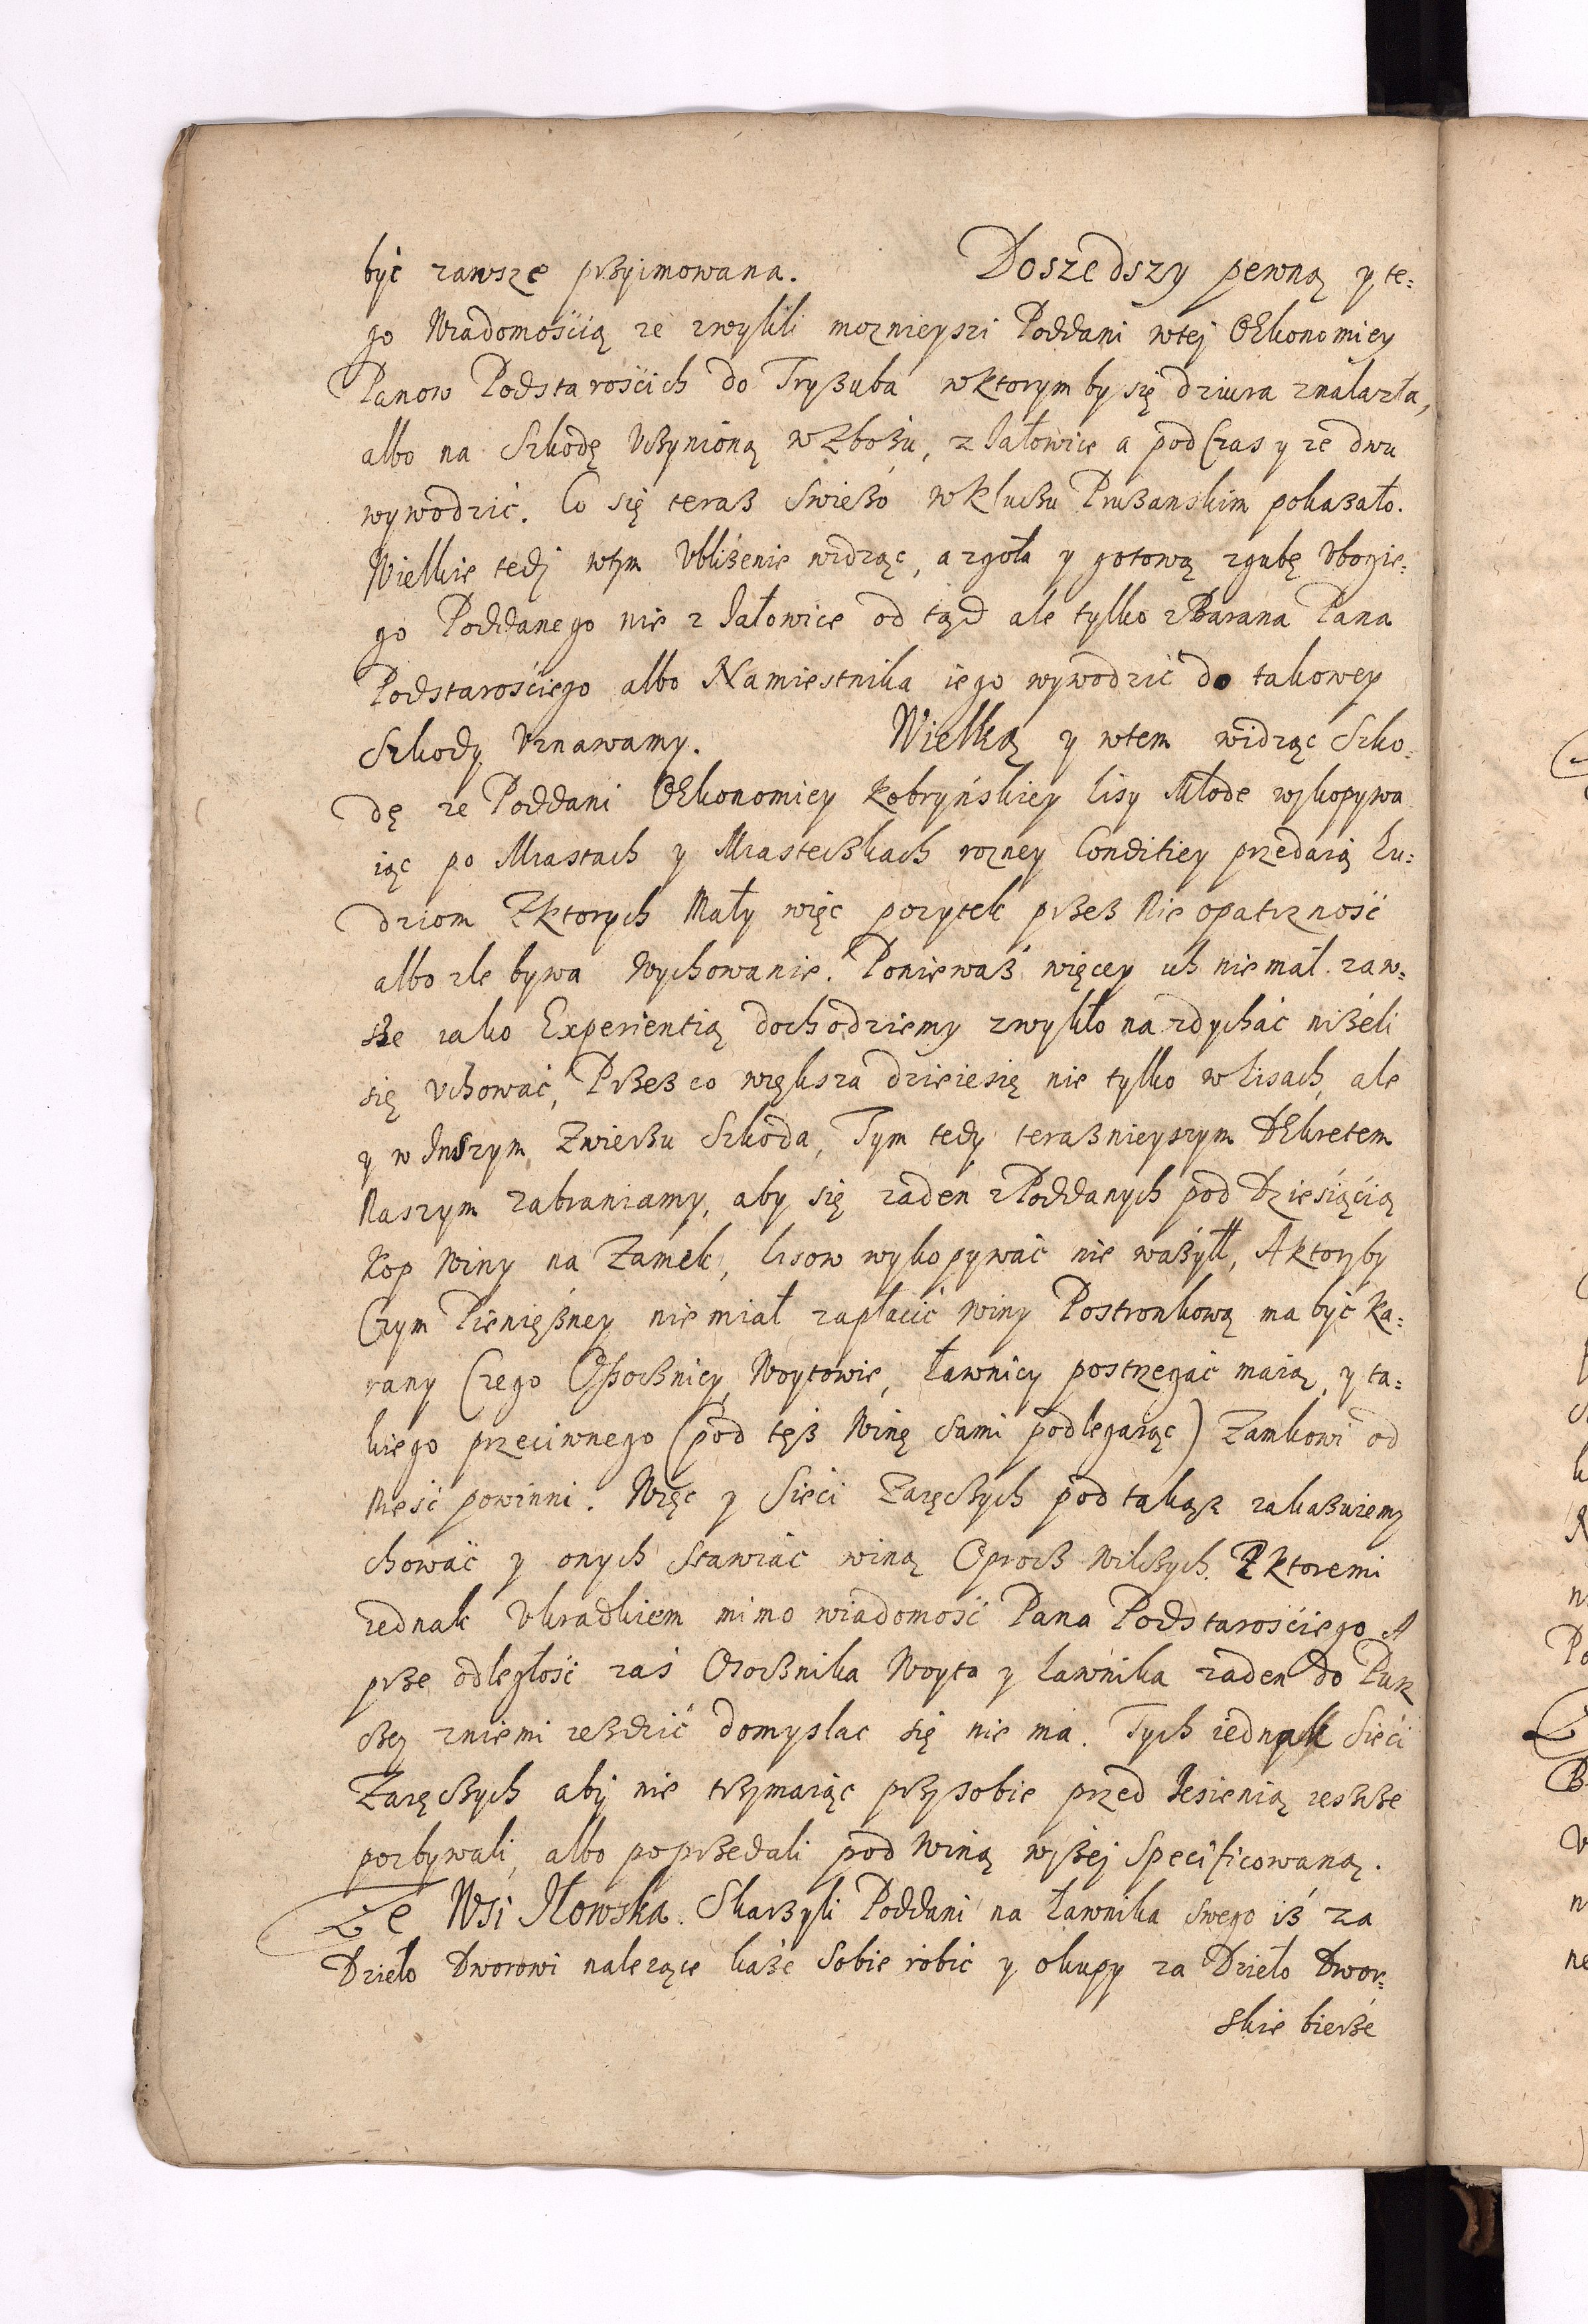 być zawsze przyimowana. Doszedszy pewną y te-
go Wiadomością ze zwykli moznieyszi Poddani wtej OEkonomiey
Panow Podstarościch do Tryßuba wktorym by się dziura znalazła,
albo na Szkodę Vczynioną w Zbożu, z Jałowice a pod Czas y ze dwu
wywodzić. Co się teraß Swieżo wKluczu Prużanskim pokazało.
Wielkie tedj wtym Vbliżenie widząc, a zgoła y gotową zgubę Vbogie-
go Poddanego nie z Jałowice od tąd ale tylko z Barana Pana
Podstarościego albo Namiestnika iego wywodzić do takowey
Szkody Vznawamy. Wielką y wtem widząc Szko-
dę ze Poddani OEkonomiey Kobryńskiey Lisy Młode wykopywa
iąc po Miastach y Miasteczkach rozney Conditiey przedaią Lu-
dziom Zktorych Mały więc pozytek przeß Nie opatrzność
albo zle bywa Wychowanie. Ponieważ więcey ich nie mal zaw-
sze iako Experientią dochodziemy zwykło na zdychać niżeli
się Vchować, Przez co większa dzieie się nie tylko w Lisach, ale
y w Inszym Zwierzu Szkoda, Tym tedy teraznieyszym DEkretem
Naszym zabraniamy, aby się zaden z Poddanych pod Dziesiącią
Kop Winy na Zamek, Lisow wykopywać nie ważył, A ktoryby
Czym Pieniężney nie miał zapłacić Winy Postronkową ma być Ka-
rany Czego Osocznicy, Woytowie, Ławnicy postrzegać maią, y ta-
kiego przeciwnego (pod tęż Winę sami podlegaiąc) Zamkowi od
Nieść powinni. Więc y Sieci Zaięczych pod takąż zakazuiemy
chować y onych Stawiać winą Oprocz Wilczych. Zktoremi
iednak Vkradkiem mimo wiadomość Pana Podstarościego A
prze odległość zaś Osocznika Woyta y Ławnika zaden do Pusz
czej zniemi iezdzić domyslac się nie ma. Tych iednak Sieci
Zaięczych abj nie trzymaiąc przy sobie przed Jesienią ieszcze
pozbywali, albo poprzedali pod Winą wyżej Specificowaną.
Ze Wsi Iłowska. Skarżyli Poddani na Ławnika swego iż za
Dzieło Dworowi nalezące każe Sobie robić y okupy za Dzieło Dwor-
skie bierze